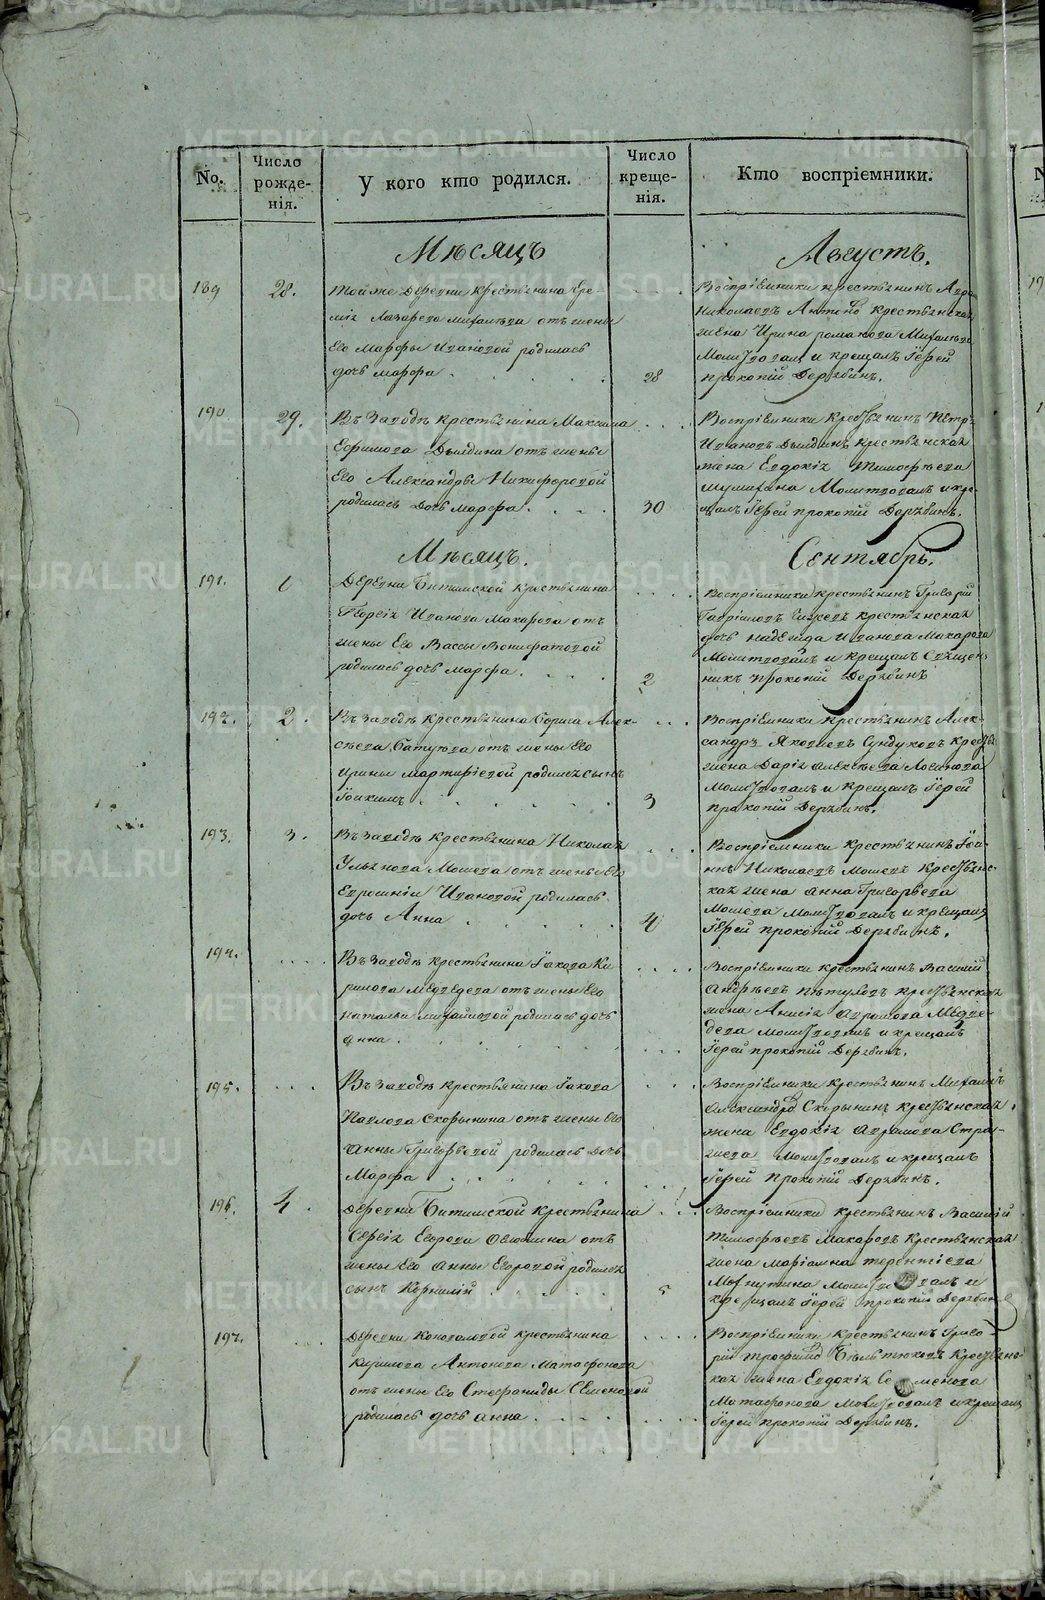 No.
Число рожде-нія.
У кого кто родился.
Число креще-нія.
Кто воспріемники.
Мѣсяцъ
Августъ.
189
28.
Той же Деревни крестьянина Ере-
мія Лазарева отъ жены
Его Марфы Ивановой родилась
дочь Марфа
28
Воспріемники крестьянинъ
Николаевъ крестьянская
жена Ирина романова
Молитвовалъ и крещалъ Іерей
прокопій Дерябинъ.
190
29.
Въ Заводѣ крестьянина Максима
Ефимова Дылдина отъ жены
Его Александры Никифоровой
родилась Дочь марфа
30
Воспріемники Крестьянинъ Петръ
Ивановъ Дылдинъ крестьянская
жена Евдокія Тимофѣева
Молитвовалъ и кре-
щалъ Іерей прокопій Дерябинъ.
Мѣсяцъ.
Сентябрь.
191.
1
Деревни Битимской крестьянина
Георгія Иванова Макарова отъ
жены Его Вассы Вонифатовой
родилась дочь марфа
2
Воспріемники крестьянинъ Григорій
Гавріиловъ крестьянская
дочь надежда Иванова Макарова
Молитвовалъ и крещалъ Священ-
никъ Прокопій Дерябинъ
192.
2.
Въ Заводѣ Крестьянина Бориса Алек-
сѣева отъ жены Его
Ирины мартиніевой родился сынъ
Іоакимъ
3
Воспріемники крестьянинъ Алек-
сандръ Яковлевъ Сундуковъ
жена Дарія алексѣева
Молитвовалъ и крещалъ Іерей
прокопій Дерябинъ.
193.
3.
Въ Заводѣ крестьянина Николая
Ульянова отъ жены его
Евросиніи Ивановой родилась
дочь Анна
4
Воспріемники крестьянинъ Іоан-
нъ Николаевъ Крестьянс-
кая жена анна Григорьева
молитвовалъ и крещалъ
Іерей прокопій Дерябинъ.
194.
Въ Заводѣ крестьянина Іакова Ки-
рилова Медведева отъ жены Его
Натальи михайловой родилась дочь
анна
Воспріемники крестьянинъ Василій
Андреевъ Пѣтуховъ крестьянская
жена Анисія Медве-
дева молитвовалъ и крещалъ
Іерей прокопій Дерябинъ.
195.
Въ Заводѣ крестьянина Іакова
Павлова Скорынина отъ жены Его
анны Григорьевой родилась дочь
Марфа
Воспріемники крестьянинъ Михаилъ
александровъ Скорынинъ крестьянская
жена Евдокія аврамова
Молитвовалъ и крещалъ
Іерей Прокопій Дерябинъ.
196.
4.
Деревни Битимской Крестьянина
Сергія Егорова отъ
жены Его анны Егоровой родился
сынъ Корнилій
5
Воспріемники крестьянинъ Василій
Тимофѣевъ Макаровъ крестьянская
жена маріамна терентіева
молитвовалъ и
крещалъ Іерей прокопій Дерябинъ
197.
Деревни Коноваловой крестьянина
Кирилова Антонова Матафонова
отъ жены Его Стефаниды Семеновой
родилась дочь анна
Воспріемники крестьянинъ Григо-
рій трофимовъ Крестьянс-
кая жена Евдокія Семенова
Матафонова Молитвовалъ и крещалъ
Іерей прокопій Дерябинъ.
METRIKI.GASO-URAL.RU